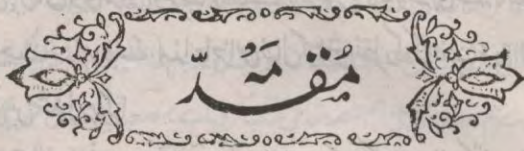 مُقَدِّمَهْ